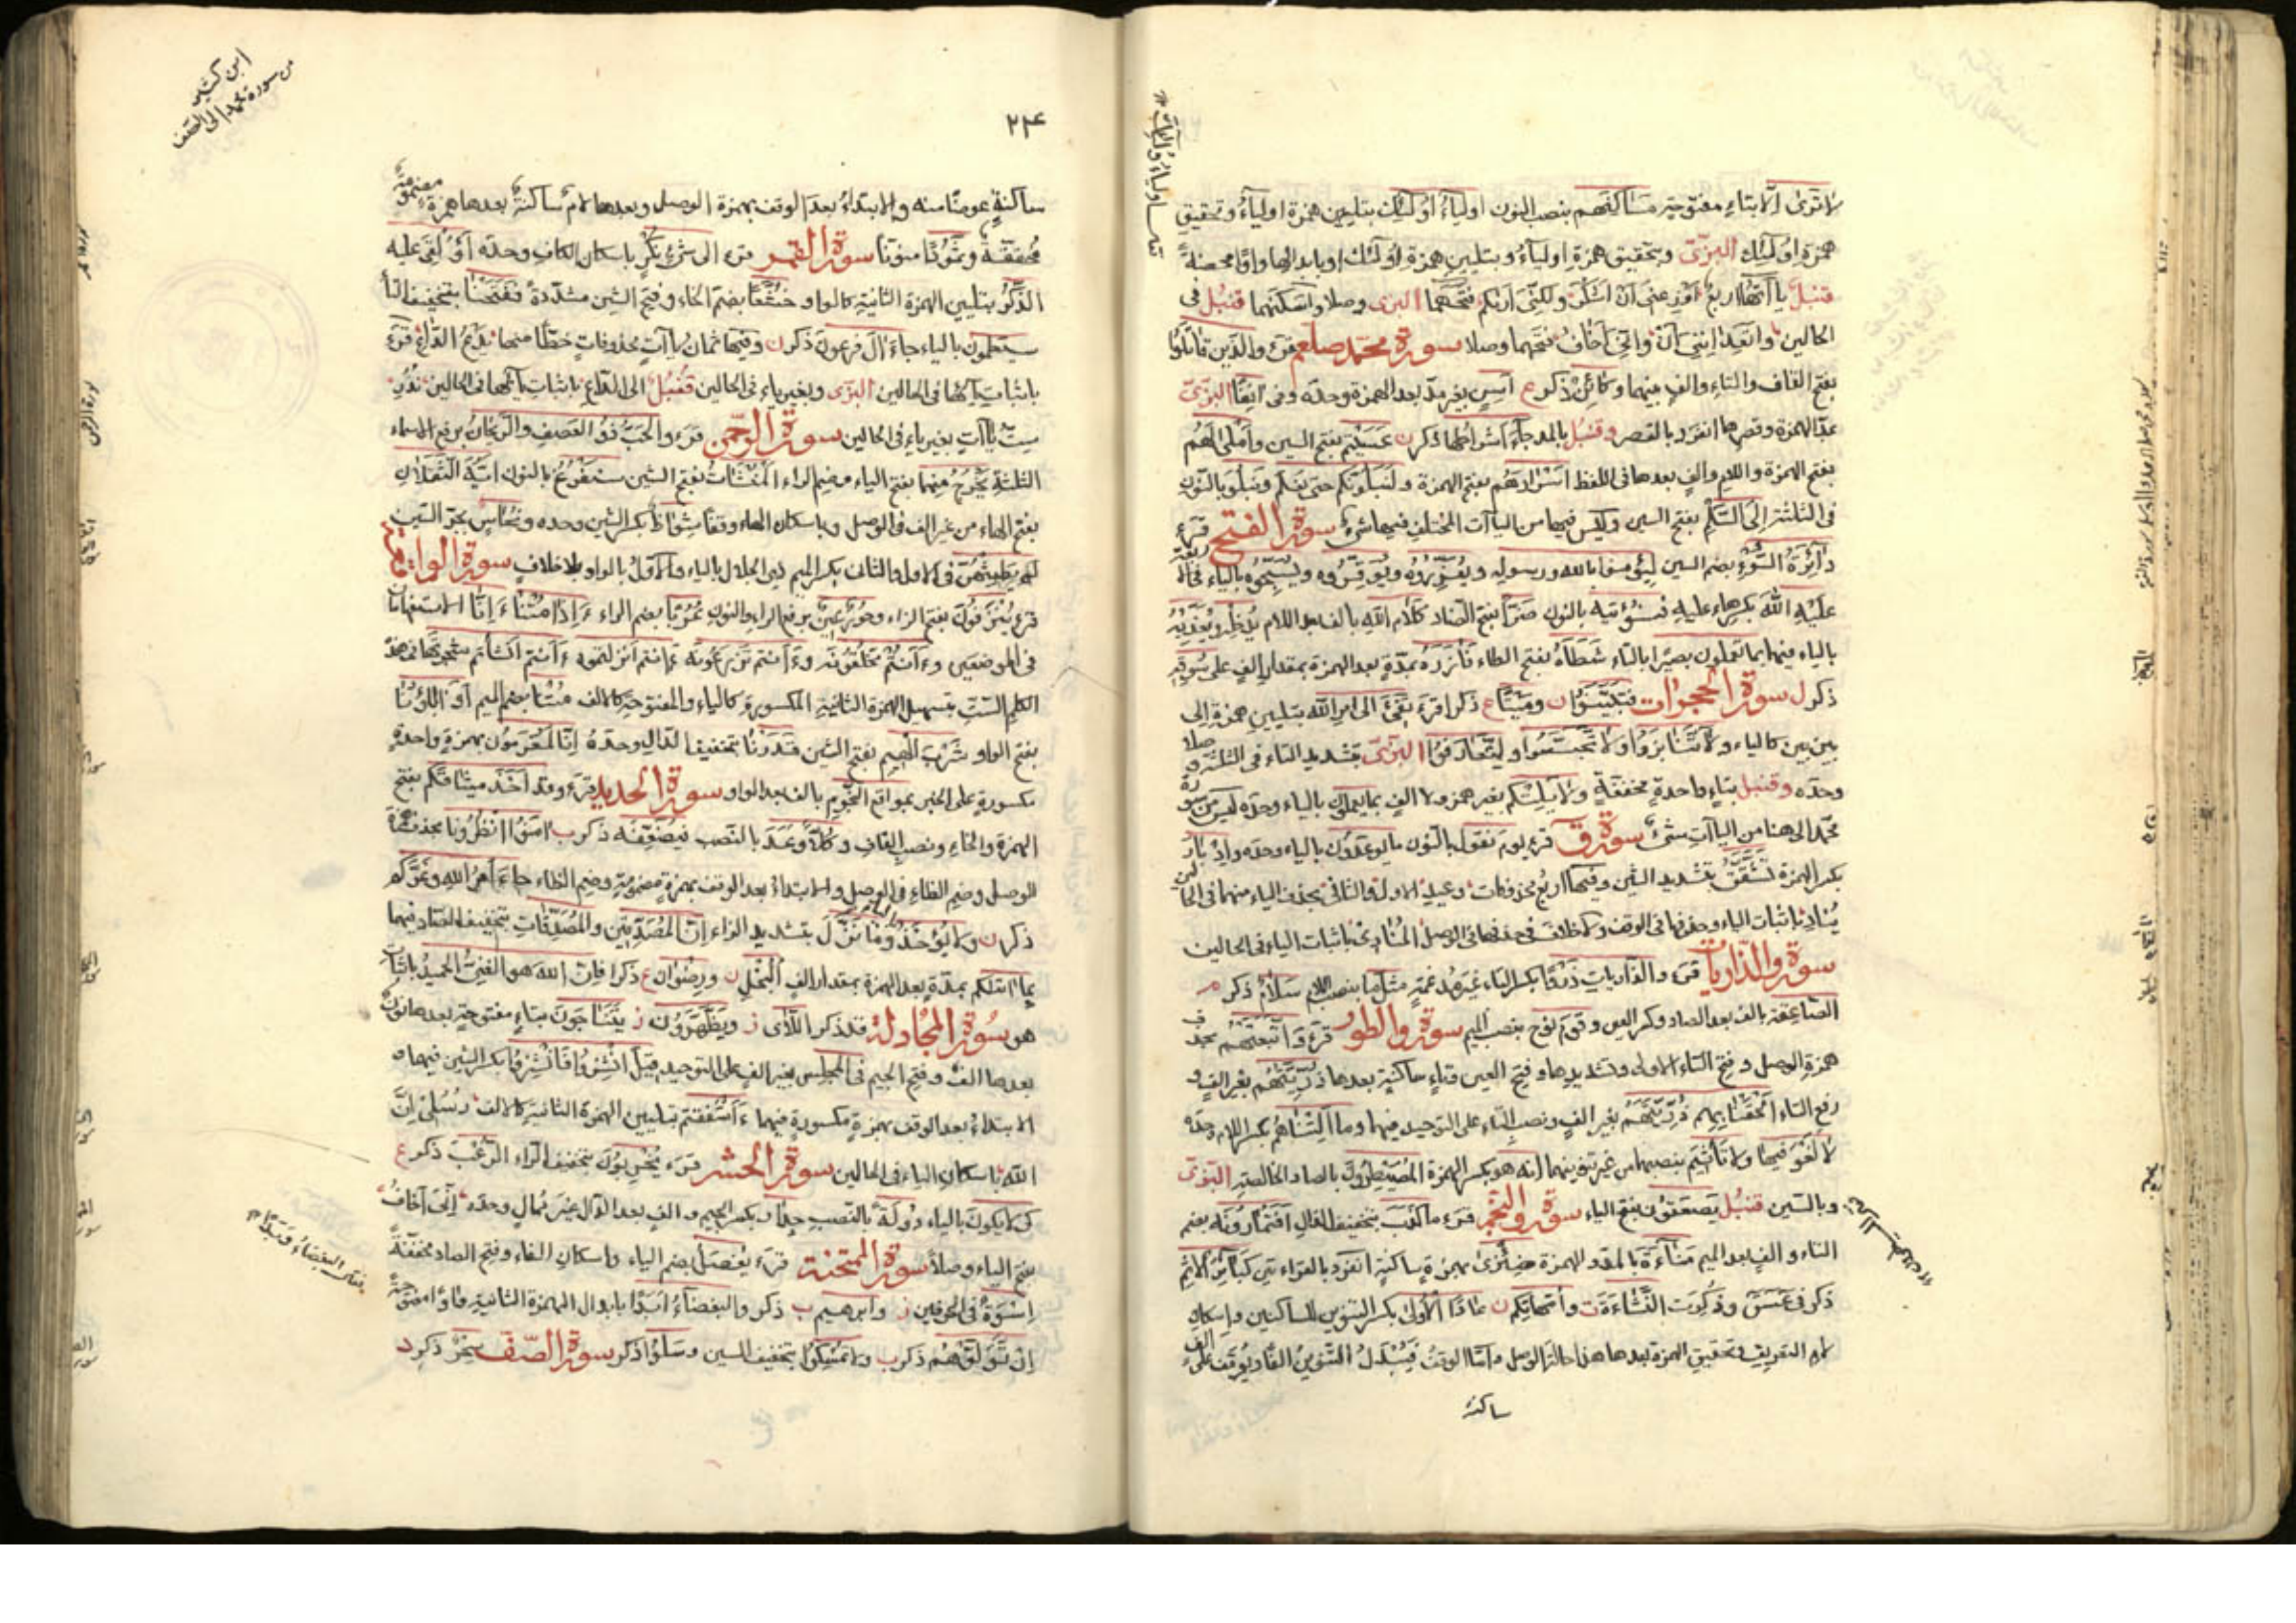 لا ترى الا بتاء مفتوحة مساكنهم بنصب النون اولياء اولئك بتليين همزة اولياء وتحقيق
همزة اولئك البزى وبتحقيق همزة اولياء وبتليين همزة اولئك
قنبل ياآتها اربع اوزعنى ان اشكر ولكنى اريكم فتحهما البزى وصلا واسكنهما قنبل فى
الحالين اتعداننى ان وانى اخاف فتحهما وصلا سورة محمد صلعم قرء والذين قاتلوا
بفتح القاف والتاء والف بينهما وكائن ذكر ع اسن بغير مد بعد الهمزة وحده وفى انفا البزى
بمد الهمزة وقصرها انفرد بالقصر وقنبل بالمد جاء اشراطها ذكر ن عسيتم بفتح السين واملى لهم
بفتح الهمزة واللام والف بعدها فى اللفظ اسرارهم بفتح الهمزة ولنبلونكم حتى نعلم ونبلو بالنون
فى الثلثة الى السلم بفتح السين وليس فيها من الياآت المختلف فيها شئ سورة الفتح قرء
دائرة السوء بضم السين ليؤمنوا بالله ورسوله ويعزروه ويوقروه ويسبحوه بالياء فى الاربعة
عليه الله بكسر هاء عليه فسنؤتيه بالنون ضرا بفتح الضاد كلام الله بالف بعد اللام يدخله ويعذبه
بالياء فيهما بما تعملون بصيرا بالتاء شطأه بفتح الطاء فآزره بمدة بعد الهمزة بمقدار الف على سوقه
ذكر ل سورة الحجرات فتبينوا ن وميتا ع ذكرا قرء تفىء الى امر الله بتليين همزة الى
بين بين كالياء ولا تنابزوا ولا تجسسوا ولتعارفوا البزى بتشديد التاء فى الثلثة وصلا
وحده وقنبل بتاء واحدة مخففة ولا يلتكم بغير همز ولا الف بما يعملون بالياء وحده ليس من سورة
محمد الى هنا من الياآت شئ سورة ق قرء يوم نقول بالنون ما يوعدون بالياء وحده وادبار
بكسر الهمزة تشقق بتشديد الشين وفيها اربع محذوفات وعيد الاول والثانى بحذف الياء منهما فى الحالين
يناد باثبات الياء وحذفها فى الوقف ولا خلاف فى حذفها فى الوصل المنادى باثبات الياء فى الحالين
سورة والذاريات قرء والذاريات ذروا بكسر التاء غير مدغمة مثل ما بنصب اللام سلام ذكر
الصاعقة بالف بعد الصاد وكسر العين وقوم نوح بنصب الميم سورة والطور قرء واتبعتهم بحذف
همزة الوصل وفتح التاء الاولى وتشديدها وفتح العين وتاء ساكنة بعدها ذريتهم بغير الف و
رفع التاء الحقنا بهم ذريتهم بغير الف ونصب التاء على التوحيد فيهما وما التناهم بكسر اللام وحده
لا لغو فيها ولا تأثيم بنصبهما من غير تنوينهما انه هو بكسر الهمزة المصيطرون بالصاد الخالصة البزى
وبالسين قنبل يصعقون بفتح الياء سورة والنجم قرء ما كذب بتخفيف الذال افتمارونه بضم
التاء والف بعد الميم مناءة بالمد والهمزة ضئزى بهمزة ساكنة انفرد بالقراءتين كبائر الاثم
ذكر فى عسق وذكرت النشاءة ت وامهاتكم ن عادا الاولى بكسر التنوين للساكنين واسكان
لام التعريف وتحقيق الهمزة بعدها هذا حالة الوصل واما الوقف فيبدل التنوين الفا ويوقف على
ساكنة
ابن كثير
من سورة محمد الى الصف
۲۲۴
ساكنة عوضا منه والابتداء بعد الوقف بهمزة الوصل وبعدها لام ساكنة بعدها همزة مضمومة
محققة وثمودا منونا سورة القمر قرء الى شئ نكر باسكان الكاف وحده اؤلقى عليه
الذكر بتليين الهمزة الثانية كالواو خشعا بضم الخاء وفتح الشين مشددة ففتحنا بتخفيف التا
سيعلمون بالياء جاء ال فرعون ذكر ن وفيها ثمان ياآت محذوفات خطا منها يدع الداع قرء
باثبات يائها فى الحالين البزى وبغير ياء فى الحالين قنبل الى الداع باثبات يائها فى الحالين نذر
ست ياآت بغير ياء فى الحالين سورة الرحمن قرء والحب ذو العصف والريحان برفع الاسماء
الثلثة يخرج منهما بفتح الياء وضم الراء المنشآت بفتح الشين سنفرغ بالنون ايه الثقلان
بفتح الهاء من غير الف فى الوصل وباسكان الهاء وقفا شواظ بكسر الشين وحده ونحاس بجر السين
لم يطمثهن فى الاول والثانى بكسر الميم ذى الجلال بالياء والاول بالواو بلا خلاف سورة الواقعة
قرء ينزفون بفتح الزاء وحور عين برفع الراء والنون عربا بضم الراء ءاذا متنا ءانا الاستفهامان
فى الموضعين ءانتم تخلقونه ءانتم تزرعونه ءانتم انزلتموه ءانتم انشأتم شجرتها فى هذه
الكلم الست بتسهيل الهمزة الثانية المكسورة كالياء والمفتوحة كالالف متنا بضم الميم اوآباؤنا
بفتح الواو شرب الهيم بفتح الشين قدرنا بتخفيف الدال وحده انا لمغرمون بهمزة واحدة
مكسورة على الخبر بمواقع النجوم بالف بعد الواو سورة الحديد قرء وقد اخذ ميثاقكم بفتح
الهمزة والخاء ونصب القاف وكلا وعد بالنصب فيضعفه ذكر ب امنوا انظرونا بحذف همزة
الوصل وضم الظاء فى الوصل والابتداء بعد الوقف بهمزة مضمومة وضم الظاء جاء امر الله وغركم
ذكر ن ولا يؤخذ وما نزل بتشديد الزاء ان المصدقين والمصدقات بتخفيف الصاد فيهما
بما اتيكم بمدة بعد الهمزة بمقدار الف بالبخل ن ورضوان ع ذكرا فان الله هو الغنى الحميد باثبات
هو سورة المجادلة قد ذكر اللاى ز ويظهرون ز يتناجون بتاء مفتوحة بعدها نون
بعدها الف وفتح الجيم فى المجلس بغير الف على التوحيد قيل انشزوا فانشزوا بكسر الشين فيهما و
الابتداء بعد الوقف بهمزة مكسورة فيهما ءاشفقتم بتليين الهمزة الثانية كالالف رسلى ان
الله باسكان الياء فى الحالين سورة الحشر قرء يخربون بتخفيف الراء الرعب ذكر ع
كى لا يكون بالياء دولة بالنصب جدار بكسر الجيم والف بعد الدال غير ممال وحده انى اخاف
بفتح الياء وصلا سورة الممتحنة قرء يفصل بضم الياء واسكان الفاء وفتح الصاد مخففة
اسوة فى الحرفين ز وابرهيم ب ذكر والبغضاء ابدا بابدال الهمزة الثانية واوا مفتوحة
ان تولوهم ذكر ب ولا تمسكوا بتخفيف السين وسلوا ذكر سورة الصف سحر ذكر د